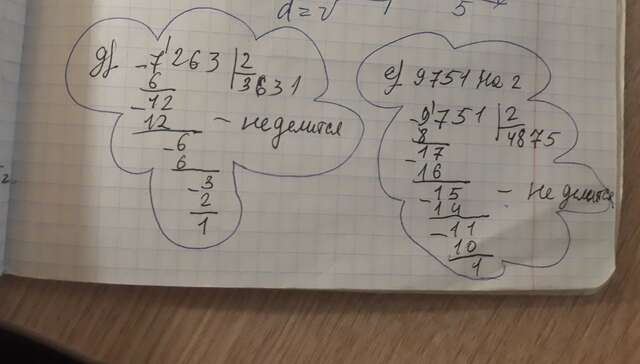 d = √
5
д) 7263 | 2
6 3631
12
12 - не делится
6
6
3
2
1
е) 9751 на 2
9751 | 2
8 4875
17
16
15 - не делится
14
11
10
1